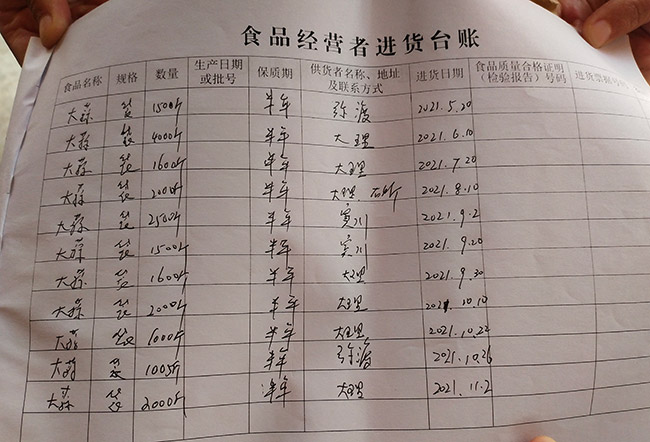 食品经营者进货台账
食品名称 规格 数量 生产日期或批号 保质期 供货者名称、地址及联系方式 进货日期 食品质量合格证明(检验报告)号码 进货票据号
大蒜 袋 1500斤 半年 弥渡 2021.5.20
大蒜 袋 4000斤 半年 大理 2021.6.10
大蒜 袋 1600斤 半年 大理 2021.7.20
大蒜 袋 2000斤 半年 大理 2021.8.10
大蒜 袋 2500斤 半年 宾川 2021.9.2
大蒜 袋 1500斤 半年 宾川 2021.9.20
大蒜 袋 1600斤 半年 大理 2021.9.30
大蒜 袋 2000斤 半年 大理 2021.10.10
大蒜 袋 1000斤 半年 大理 2021.10.22
大蒜 袋 1005斤 半年 弥渡 2021.10.26
大蒜 袋 2000斤 半年 大理 2021.11.2